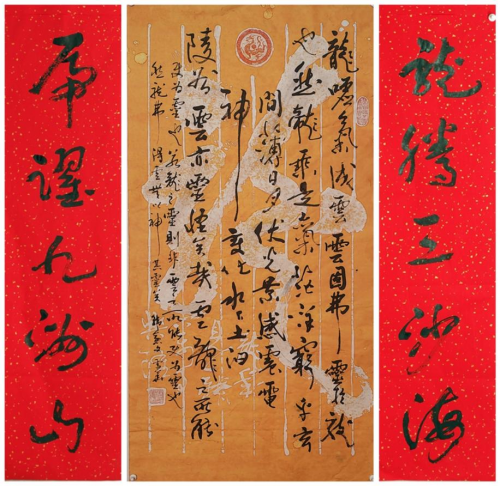 龍騰三沙海
龍噓氣成雲雲固弗靈於龍
也然龍乘是氣茫洋窮乎玄
間薄日月伏光景感震電
神變化水下土汩
陵谷雲亦靈怪矣哉雲龍之所能
使為靈也若龍之靈則非雲之所能使為靈也
然龍弗得雲無以神其靈矣
虎躍九洲山